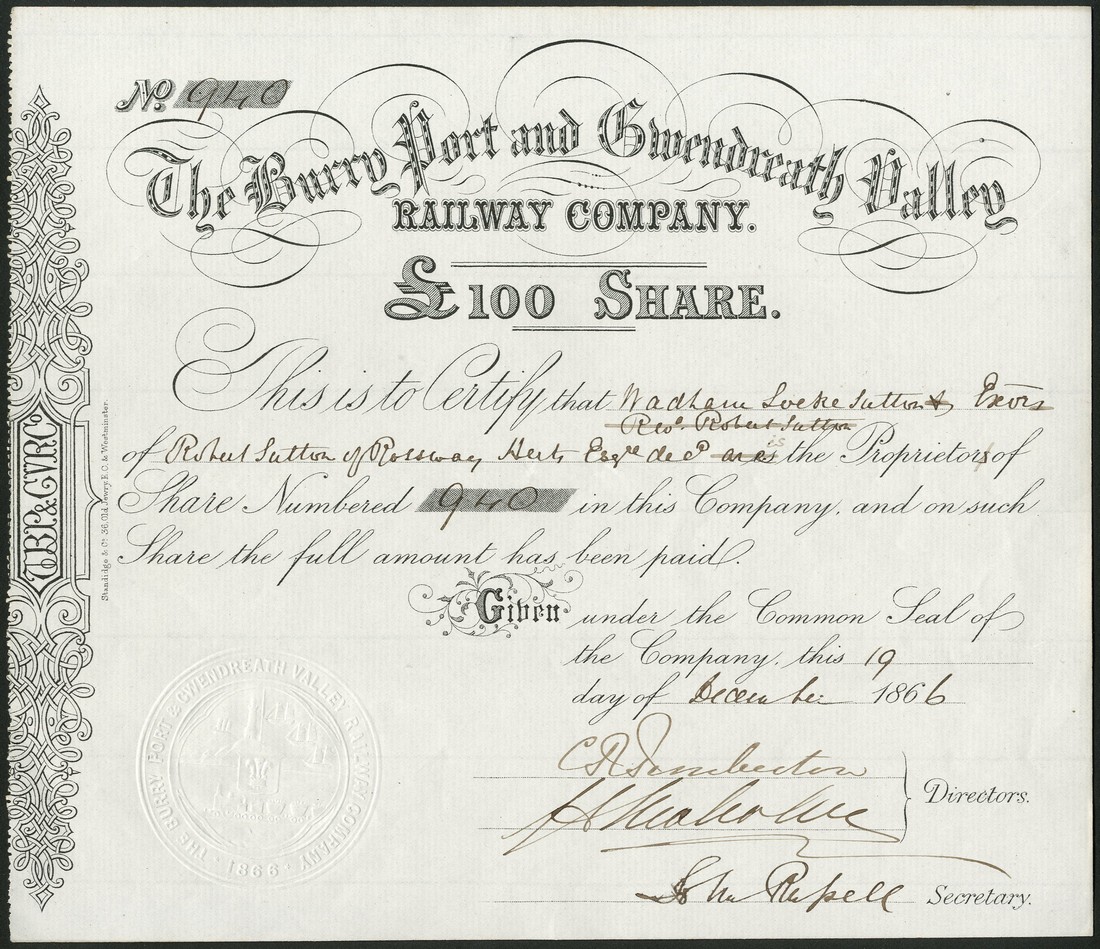 No. 940
The Burry Port and Gwendreath Valley
RAILWAY COMPANY.
£100 SHARE.
This is to Certify that Wadham Locke Sutton & Exors
Revd. Robert Sutton
of Robert Sutton of Rossway Herts Esqre decd are is the Proprietors of
Share Numbered 940 in this Company, and on such
Share the full amount has been paid.
Given under the Common Seal of
the Company, this 19
day of December 1866
Directors.
John Russell Secretary.
T.B.P. & G.V.R. Co.
Standidge & Co. 36, Old Jewry, E.C. & Westminster.
THE BURRY PORT & GWENDREATH VALLEY RAILWAY COMPANY
1866